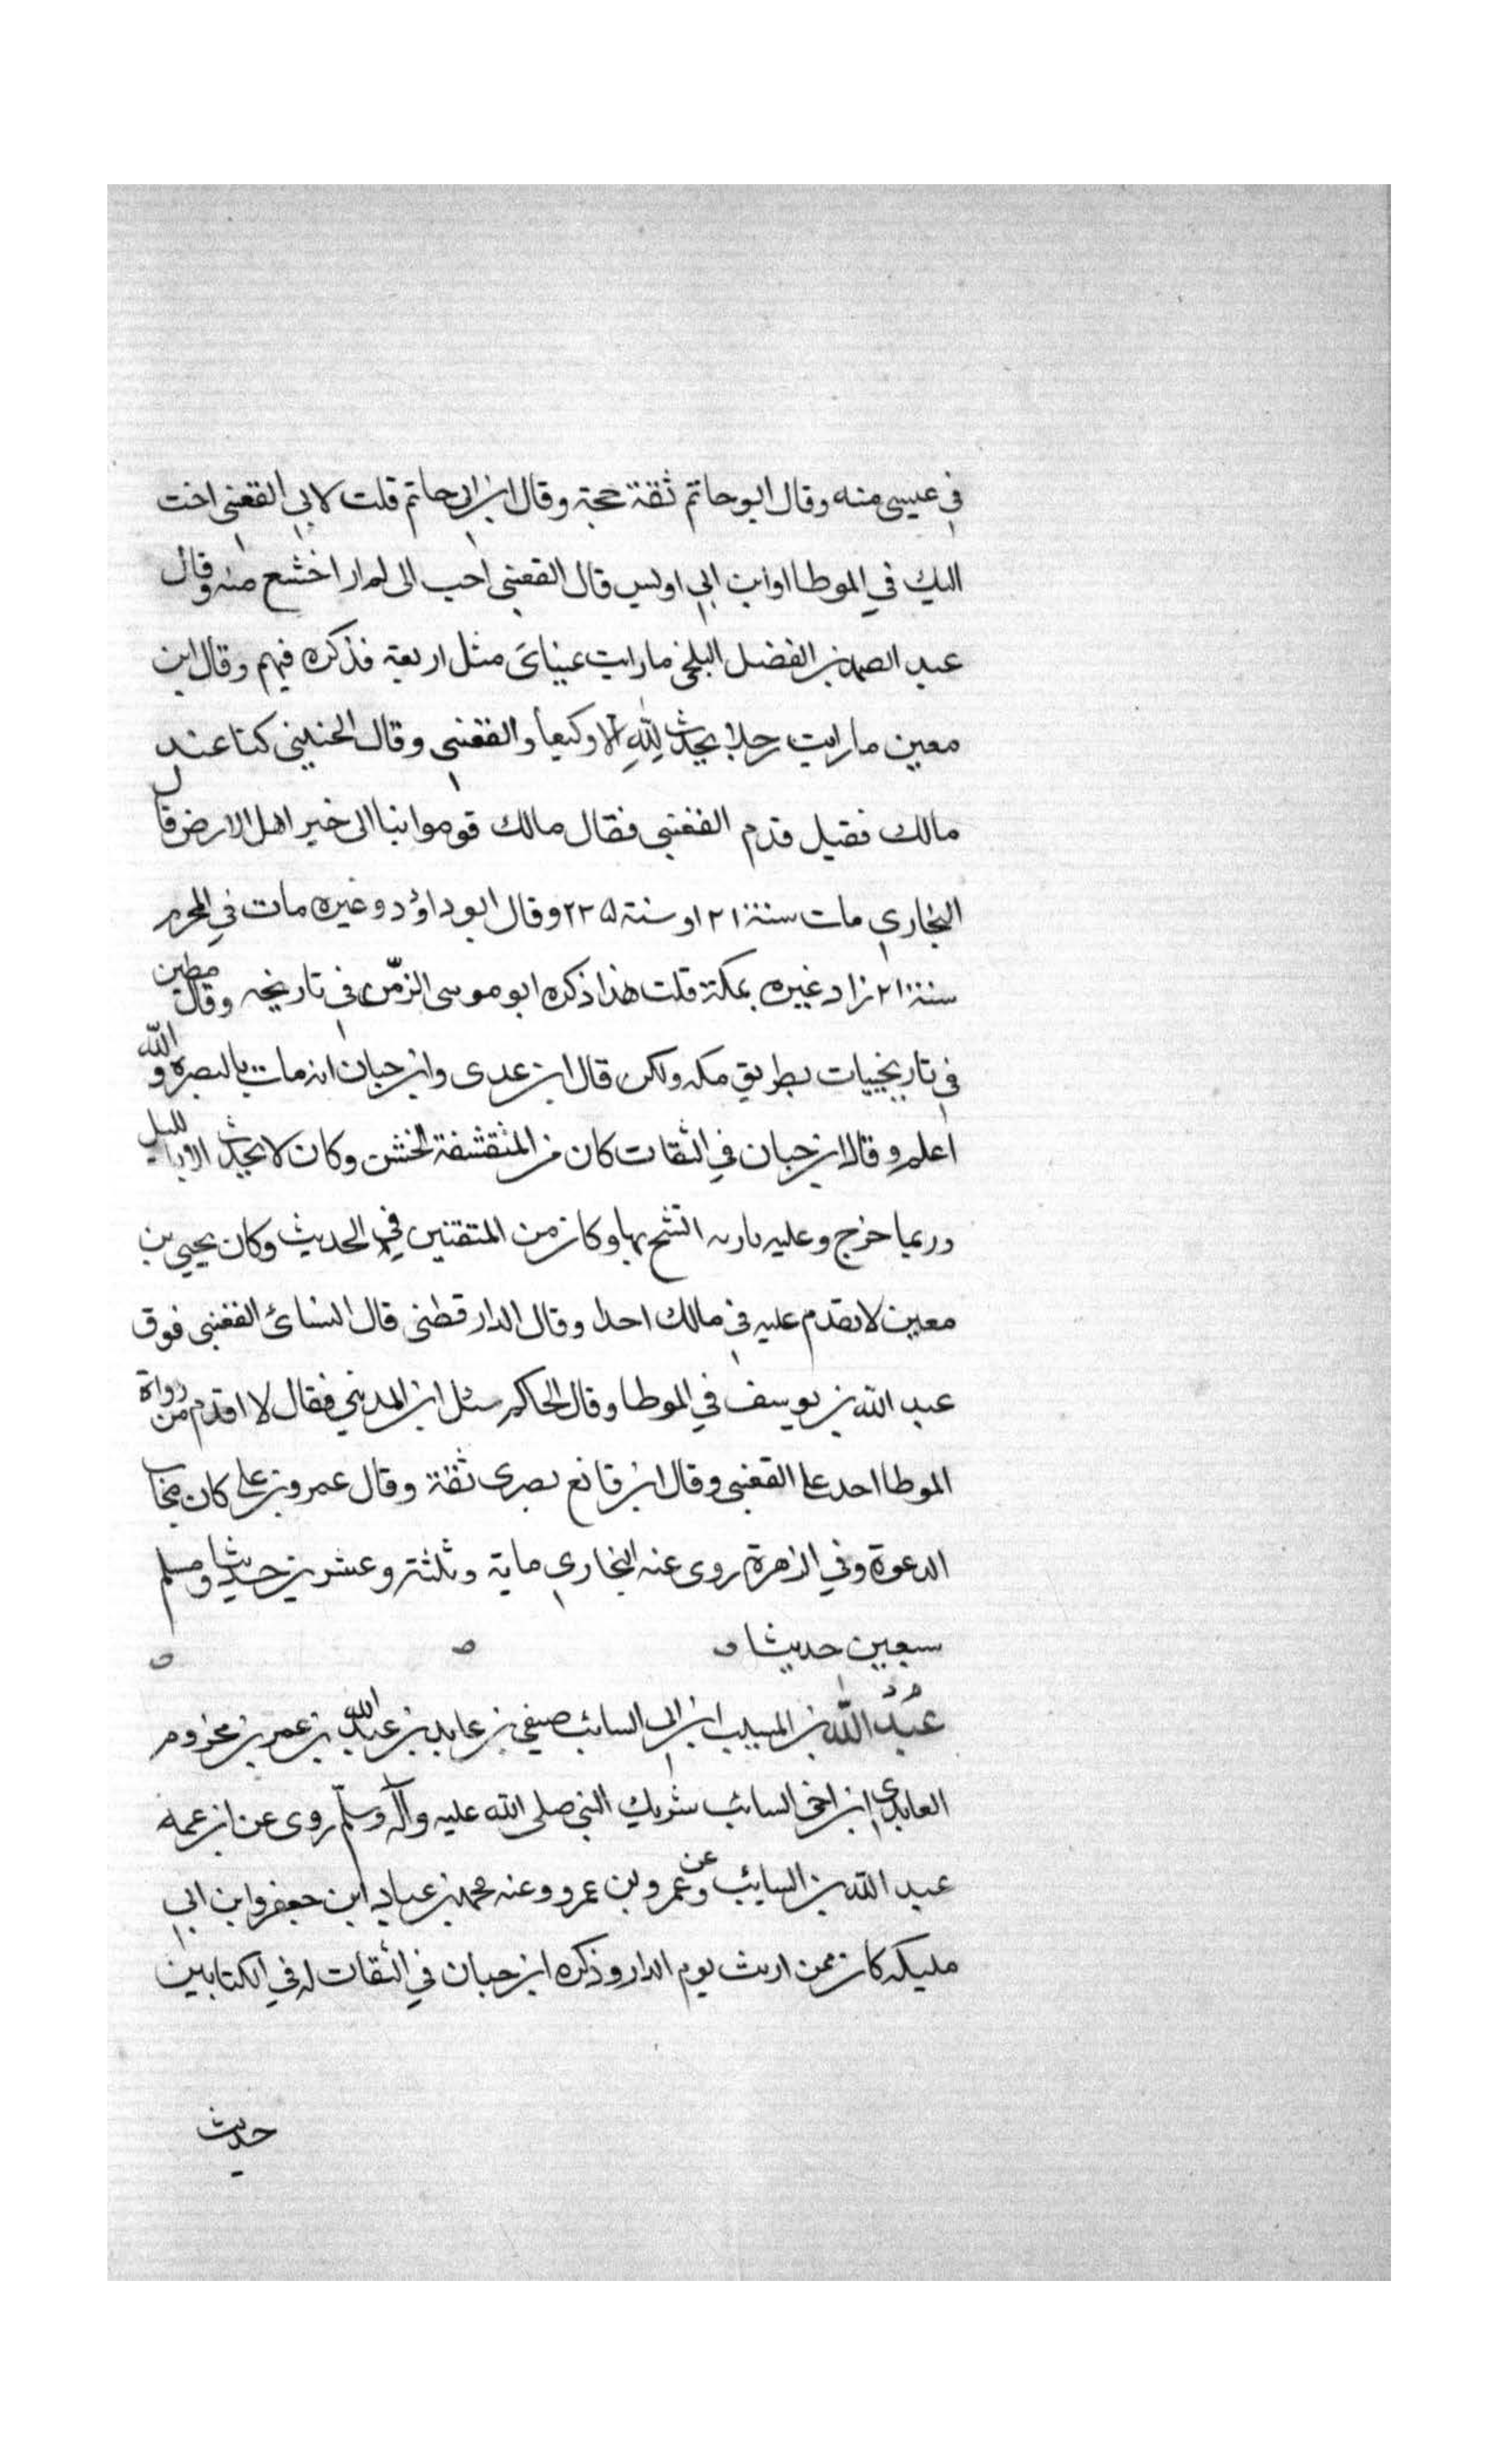 في عيسى منه وقال ابو حاتم ثقة حجة وقال ابن ابي حاتم قلت لابي القعنبي احب
اليك في الموطا او ابن ابي اويس قال القعنبي احب الى لم ار اخشع منه وقال
عبد الصمد بن الفضل البلخي ما رايت عيناى مثل اربعة فذكره فيهم وقال ابن
معين ما رايت رجلا يحدث لله الا وكيعا والقعنبي وقال الحنيني كنا عند
مالك فقيل قدم القعنبي فقال مالك قوموا بنا الى خير اهل الارض قال
البخاري مات سنة ٢١ او سنة ٢٢٥ وقال ابو داؤد وغيره مات في المحرم
سنة ٢١ زاد غيره بمكة قلت هذا ذكره ابو موسى الزمن في تاريخه وقال مطين
في تاريخه مات بطريق مكه ولكن قال ابن عدى وابن حبان انه مات بالبصره والله
اعلم وقال ابن حبان في الثقات كان من المتقشفة الخشن وكان لا يحدث الا بالليل
وربما خرج وعليه باريه اتشح بها وكان من المتقنين في الحديث وكان يحيى بن
معين لا يقدم عليه في مالك احدا وقال الدارقطني قال النسائ القعنبي فوق
عبد الله بن يوسف في الموطا وقال الحاكم سئل ابن المديني فقال لا اقدم من رواة
الموطا احد على القعنبي وقال ابن قانع بصرى ثقة وقال عمرو بن علي كان مجاب
الدعوة وفي الزهرة روى عنه البخاري ماية وثلثة وعشرين حديثا ومسلم
سبعين حديثا
عبد الله بن المسيب ابن ابي السائب صيفي بن عابد بن عبد الله بن عمر بن مخزوم
العابدي ابن اخي السائب شريك النبي صلى الله عليه وآله وسلم روى عن ابن عمه
عبد الله بن السايب وعن عمرو بن عمرو وعنه محمد بن عباد ابن جعفر وابن ابي
مليكه كان ممن ارتث يوم الدار وذكره ابن حبان في الثقات له في الكتابين
حديث